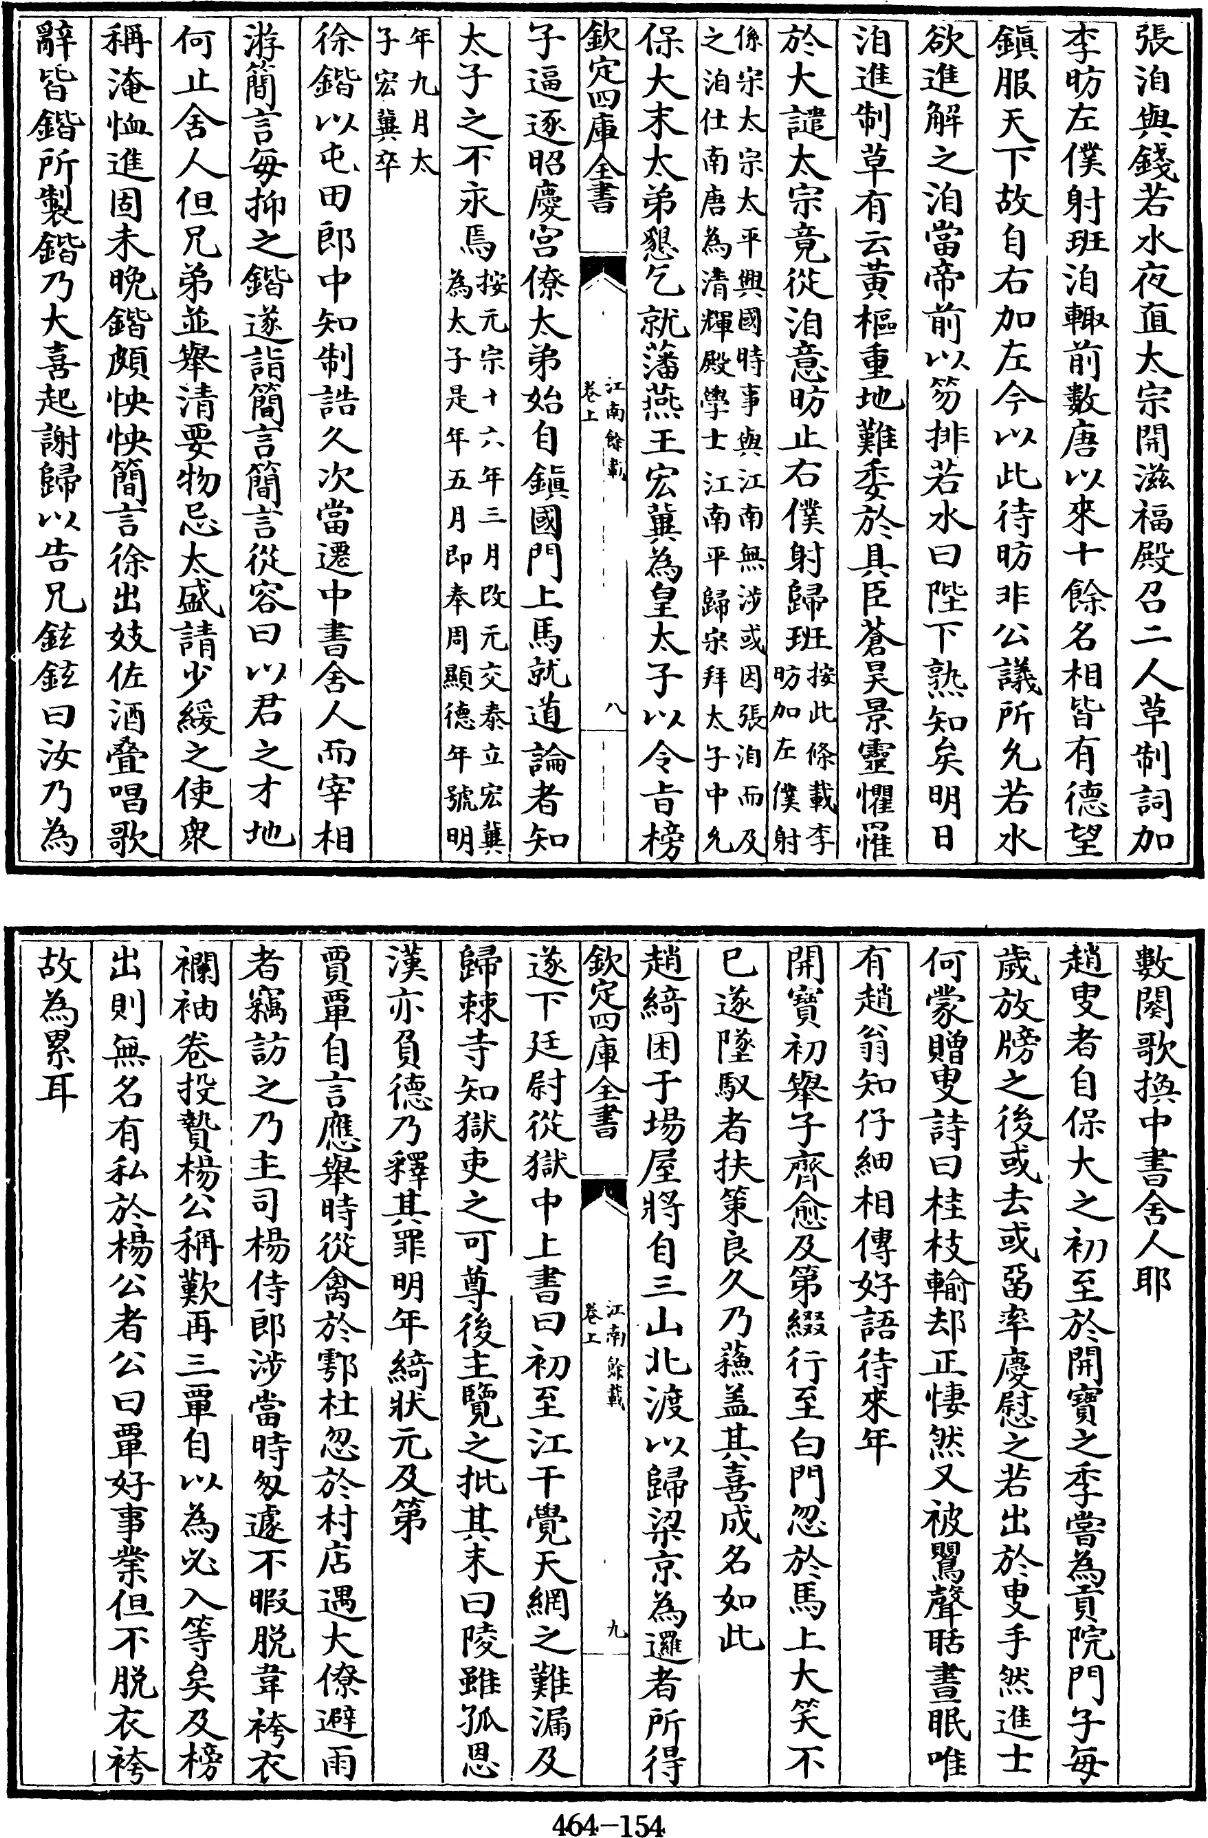 張洎與錢若水夜直太宗開滋福殿召二人草制詞加
李昉左僕射班洎輙前數唐以來十餘名相皆有德望
鎮服天下故自右加左今以此待昉非公議所允若水
欲進解之洎當帝前以笏排若水曰陛下熟知矣明日
洎進制草有云黄樞重地難委於具臣蒼昊景靈懼罹
於大譴太宗竟從洎意昉止右僕射歸班按此條載李
昉加左僕射
係宋太宗太平興國時事與江南無涉或因張洎而及
之洎仕南唐為清輝殿學士江南平歸宋拜太子中允
保大末太弟懇乞就藩燕王宏冀為皇太子以令旨榜
欽定四庫全書
江南餘載
卷上
八
子逼逐昭慶宫僚太弟始自鎮國門上馬就道論者知
太子之不永焉按元宗十六年三月改元交泰立宏冀
為太子是年五月即奉周顯德年號明
年九月太
子宏冀卒
徐鍇以屯田郎中知制誥久次當遷中書舍人而宰相
游簡言每抑之鍇遂詣簡言簡言從容曰以君之才地
何止舍人但兄弟並舉清要物忌太盛請少緩之使衆
稱淹恤進固未晚鍇頗怏怏簡言徐出妓佐酒叠唱歌
辭皆鍇所製鍇乃大喜起謝歸以告兄鉉鉉曰汝乃為
數闋歌換中書舍人耶
趙叟者自保大之初至於開寶之季嘗為貢院門子每
歲放牓之後或去或畱率慶慰之若出於叟手然進士
何蒙贈叟詩曰桂枝輸却正悽然又被鸎聲聒晝眠唯
有趙翁知仔細相傳好語待來年
開寶初舉子齊愈及第綴行至白門忽於馬上大笑不
已遂墜馭者扶策良久乃蘓盖其喜成名如此
趙綺困于場屋將自三山北渡以歸梁京為邏者所得
欽定四庫全書
江南餘載
卷上
九
遂下廷尉從獄中上書曰初至江干覺天網之難漏及
歸棘寺知獄吏之可尊後主覽之批其末曰陵雖孤恩
漢亦負德乃釋其罪明年綺狀元及第
賈覃自言應舉時從禽於鄠杜忽於村店遇大僚避雨
者竊訪之乃主司楊侍郎涉當時匆遽不暇脱韋袴衣
襴袖卷投贄楊公稱歎再三覃自以為必入等矣及榜
出則無名有私於楊公者公曰覃好事業但不脱衣袴
故為累耳
464-154